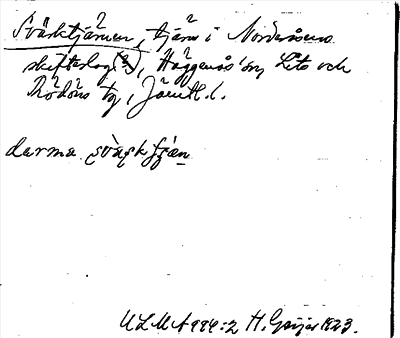 Svärktjärnen, tjärn i Norderåsens
skifteslag (?), Häggenås sn, Lits och
Rödöns tg, Jämtl. l.
darma svàrktjàn
ULMA 994:2 H. Geijer 1923.